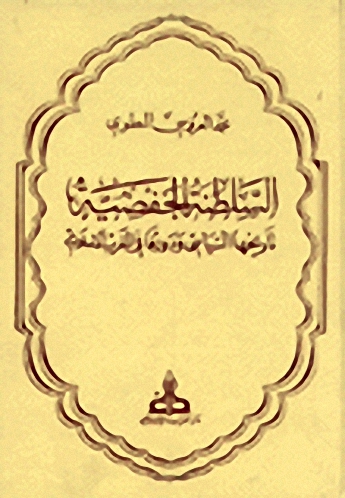 محمد العروسي المطوي
السلطنة الحفصية
تاريخها السياسي ودورها في المغرب الإسلامي